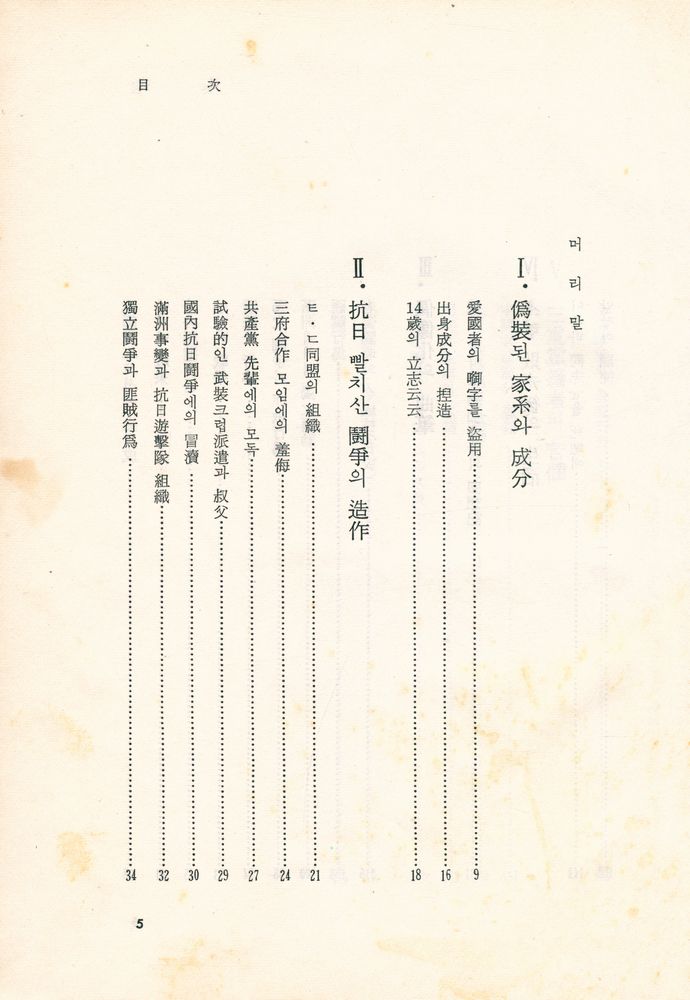 目 次
머 리 말
Ⅰ. 僞裝된 家系와 成分
愛國者의 啣字를 盜用 9
出身成分의 捏造 16
14歲의 立志云云 18
Ⅱ. 抗日 빨치산 鬪爭의 造作
ㅌ·ㄷ同盟의 組織 21
三府合作 모임에의 羞侮 24
共產黨 先輩에의 모독 27
試驗的인 武裝크럽派遣과 叔父 29
國內抗日鬪爭에의 冒瀆 30
滿洲事變과 抗日遊擊隊 組織 32
獨立鬪爭과 匪賊行爲 34
5